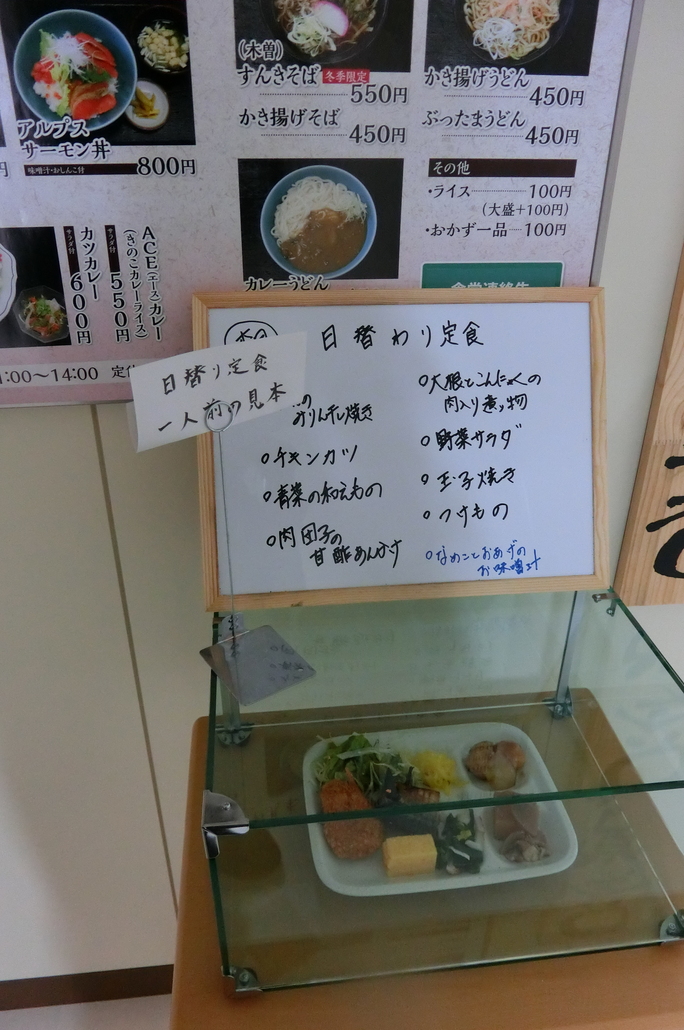 アルプス
サーモン丼
味噌汁・おしんこ付
800円
(木曽)
すんきそば 冬季限定
550円
かき揚げそば
450円
かき揚げうどん
450円
ぶったまうどん
450円
その他
・ライス 100円
(大盛+100円)
・おかず一品 100円
カレーうどん
サラダ付
カツカレー
600円
サラダ付
ACE(エース)カレー
(きのこカレーライス)
550円
:00～14:00
日替り定食
一人前の見本
日替わり定食
みりん干し焼き
チキンカツ
青菜の和えもの
肉団子の
甘酢あんかけ
大根とこんにゃくの
肉入り煮物
野菜サラダ
玉子焼き
つけもの
なめことおあげの
お味噌汁